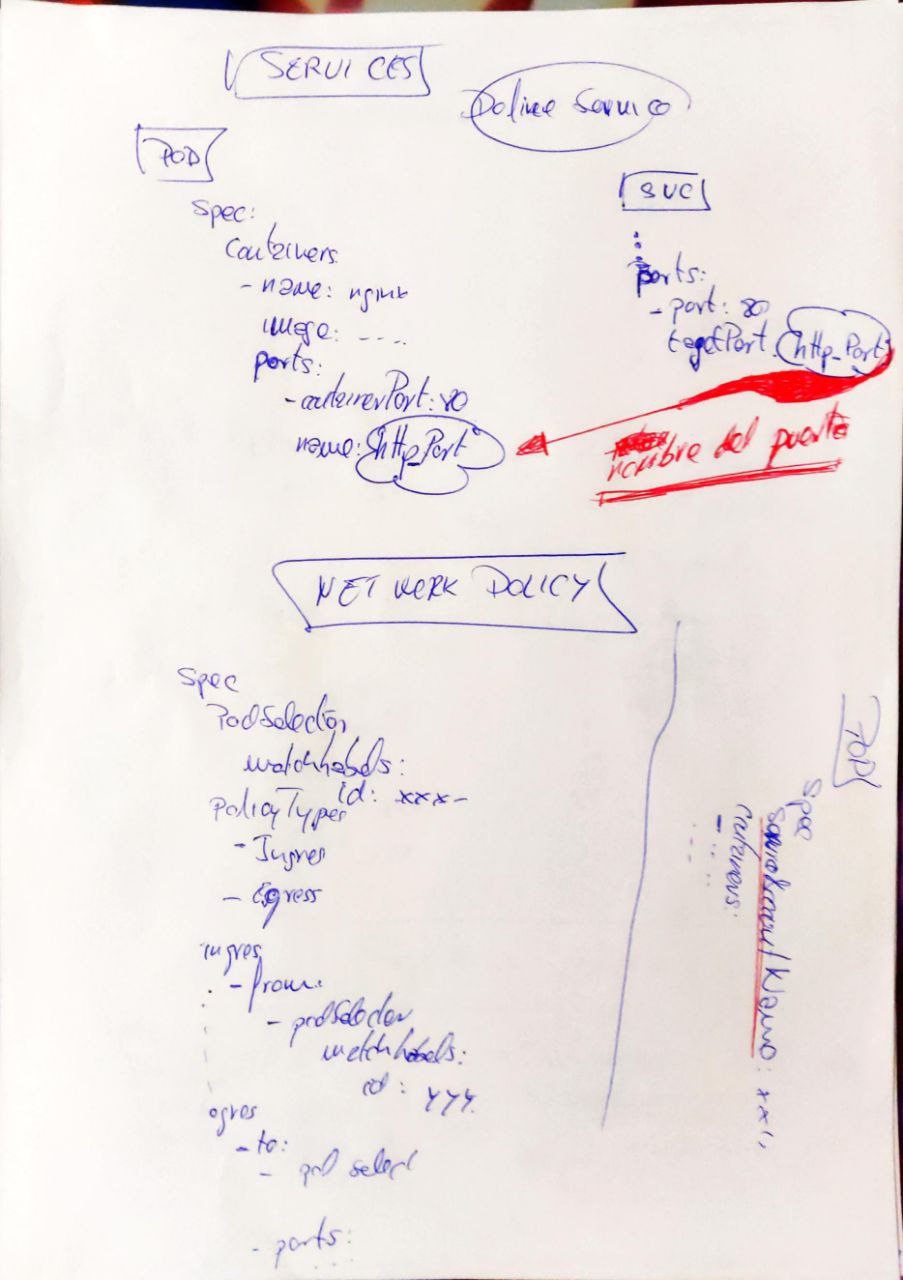 SERVICES
Define Servico
POD
Spec:
Containers
- name: nginx
image: ....
ports:
- containerPort: 80
name: http_Port
SVC
:
ports:
- port: 80
targetPort http_Port
nombre del puerto
NETWERK POLICY
Spec
PodSelector
matchLabels:
id: xxx-
PolicyTypes
- Ingres
- Egress
ingres
- from:
- podSelector
matchLabels:
id: yyy.
egres
- to:
- pod select
- ports:
....
POD
Spec
ServiceAccountName: xxx,
Containers:
- ....
....